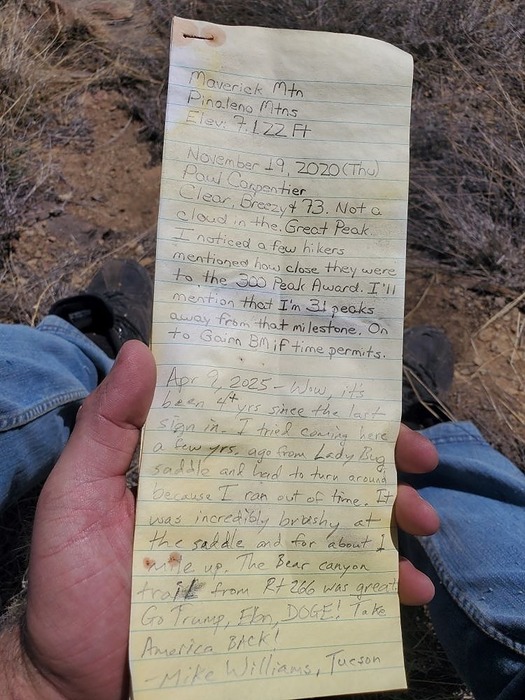 Maverick Mtn
Pinaleno Mtns
Elev: 7,122 Ft
November 19, 2020 (Thu)
Paul Carpentier
Clear, Breezy & 73. Not a
cloud in the. Great Peak.
I noticed a few hikers
mentioned how close they were
to the 300 Peak Award. I'll
mention that I'm 31 peaks
away from that milestone. On
to Gairn BM if time permits.
Apr 9, 2025 - Wow, it's
been 4+ yrs since the last
sign in. I tried coming here
a few yrs. ago from Lady Bug
saddle and had to turn around
because I ran out of time. It
was incredibly brushy at
the saddle and for about 1
mile up. The Bear canyon
trail from Rt 266 was great.
Go Trump, Elon, DOGE! Take
America BACK!
- Mike Williams, Tucson